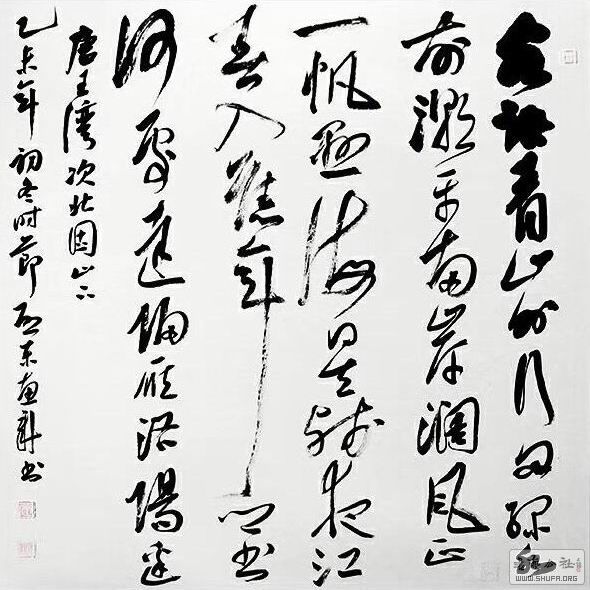 客路青山外行舟绿水
前潮平两岸濶风正
一帆悬海日生残夜江
春入舊年乡书
何處達歸雁洛陽邊
唐王湾次北固山下
乙未年初冬时節 书
WWW.SHUFA.ORG